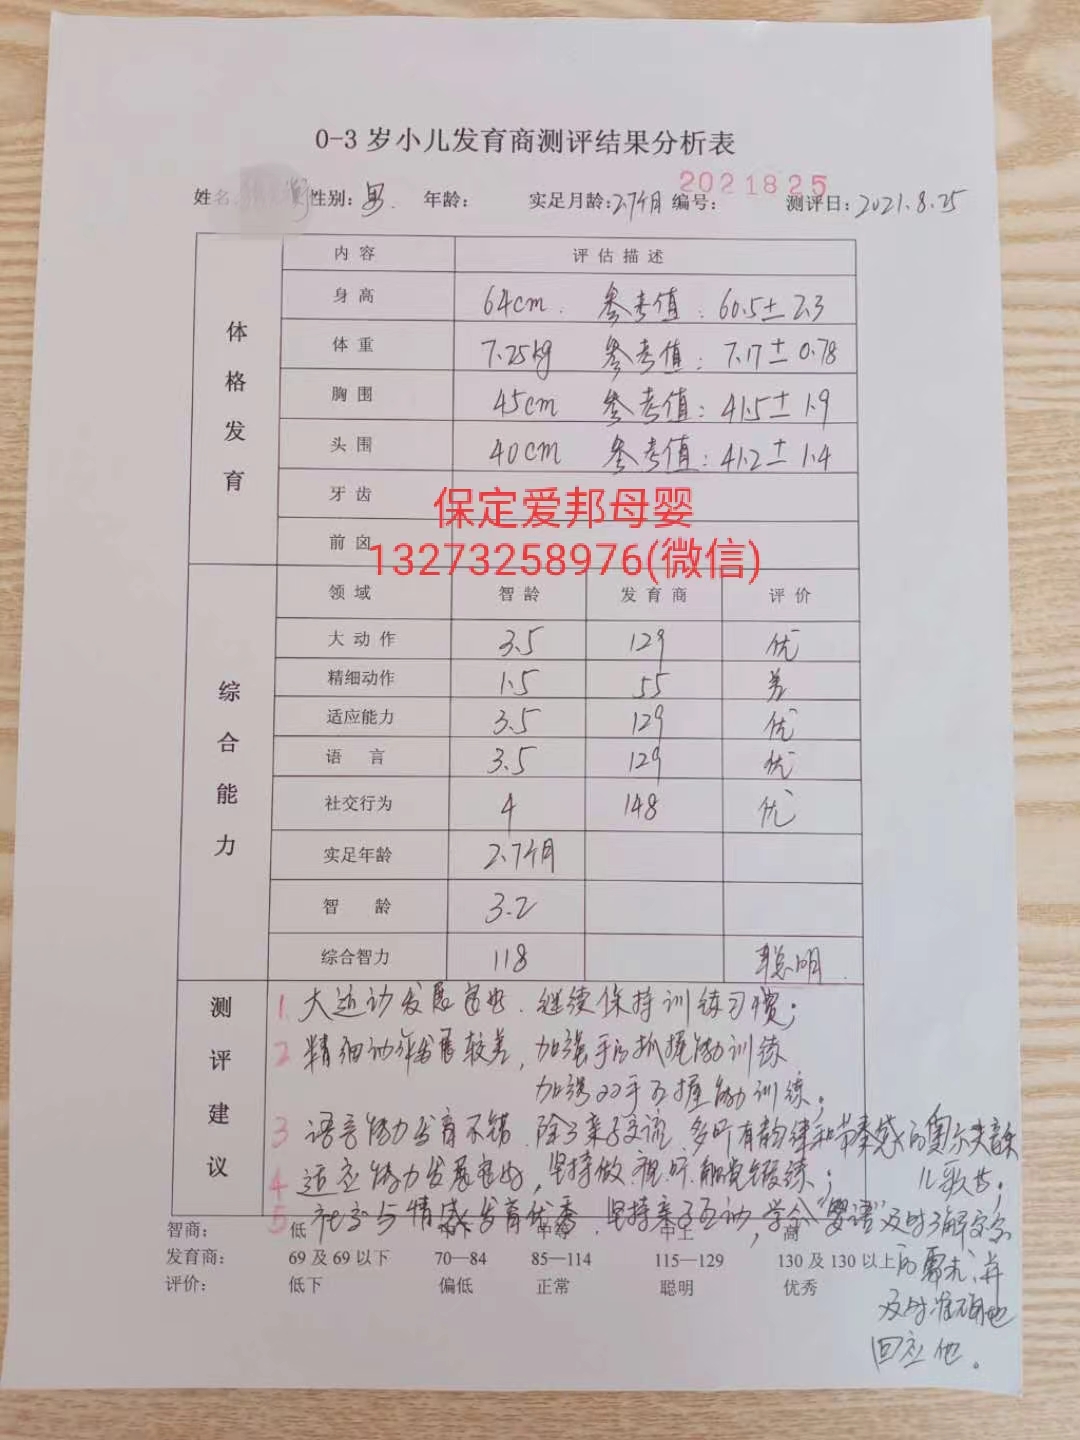 0-3 岁小儿发育商测评结果分析表
2021825
姓名: 性别: 男. 年龄: 实足月龄: 2.7个月 编号: 测评日: 2021.8.25
体格发育
内容 评估描述
身高 64cm. 参考值: 60.5±2.3
体重 7.25kg 参考值: 7.17±0.78
胸围 45cm 参考值: 41.5±1.9
头围 40cm 参考值: 41.2±1.4
牙齿
保定爱邦母婴
前囟
13273258976(微信)
综合能力
领域 智龄 发育商 评价
大动作 3.5 129 优
精细动作 1.5 55 差
适应能力 3.5 129 优
语言 3.5 129 优
社交行为 4 148 优
实足年龄 2.7个月
智龄 3.2
综合智力 118 聪明.
测评建议
1. 大运动发展良好. 继续保持训练习惯;
2 精细动作发展较差, 加强手的抓握能力训练
加强双手互握能力训练;
3 语言能力发育不错. 除了亲子交流, 多听有韵律和节奏感的奥尔夫音乐
儿歌等;
4 适应能力发展良好, 坚持做视.听.触觉锻练;
5 社交与情感发育优秀. 坚持亲子互动, 学会"婴语"及时了解宝宝
的需求, 并
及时准确地
回应他。
智商: 低 中上 高
发育商: 69 及 69 以下 70—84 85—114 115—129 130 及 130 以上
评价: 低下 偏低 正常 聪明 优秀